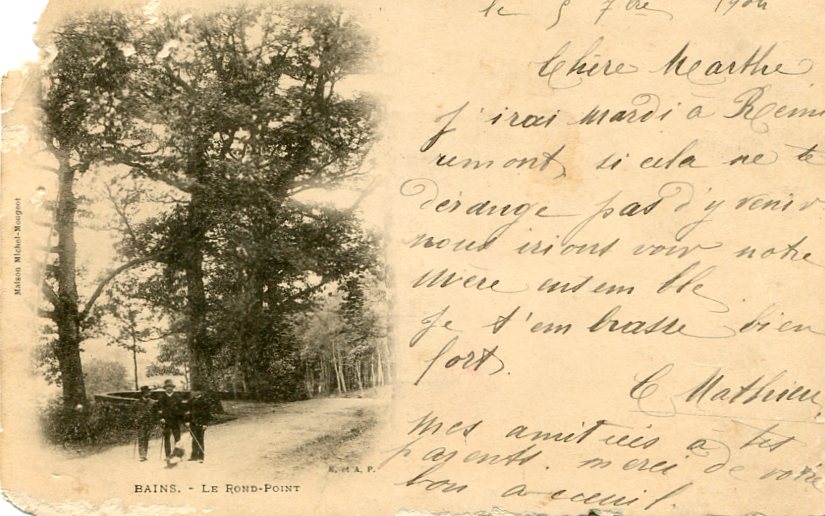 le 5 7bre 1904
Chère Marthe
J'irai mardi à Remi
remont, si cela ne te
dérange pas d'y venir
nous irions voir notre
mère ensemble
Je t'embrasse bien
fort.
C Mathieu
mes amitiés à tes
parents. merci de votre
bon accueil.
Maison Michel-Mougeot
BAINS. - LE ROND-POINT
E. et A. P.